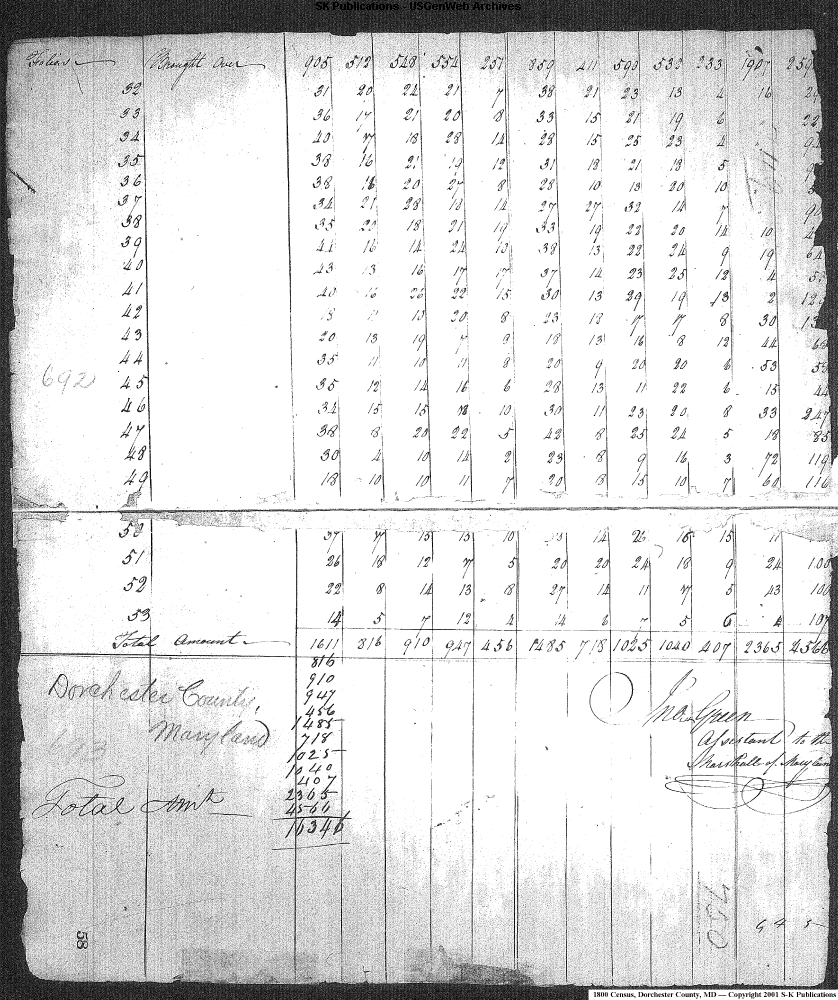 SK Publications - USGenWeb Archives
Folios Brought Over 905 512 548 554 251 859 411 590 532 233 1907 259
32 31 20 24 21 7 38 21 23 13 4 16
33 36 17 21 20 8 33 15 21 19 6 22
34 40 7 18 28 14 28 15 25 23 4
35 38 16 21 19 12 31 18 21 18 5
36 38 16 20 27 8 28 10 13 20 10
37 34 21 28 18 14 27 27 32 14 7
38 35 20 18 21 19 33 19 22 20 14 10
39 44 16 14 24 13 38 13 22 24 9 19 64
40 43 13 16 17 17 37 14 23 25 12 4
41 40 16 26 22 15 30 13 29 19 13 2
42 18 11 13 20 8 23 18 7 7 8 30
43 20 13 19 7 9 18 13 16 8 12 44
44 35 11 10 11 8 20 9 20 20 6 53
692 45 35 12 14 16 6 28 13 11 22 6 15 44
46 34 15 15 10 30 11 23 20 8 33 247
47 38 8 20 22 5 42 8 25 24 5 18 85
48 30 4 10 14 2 23 8 9 16 3 72 119
49 18 10 10 11 7 20 8 15 10 7 60 116
50 37 7 15 13 10 14 26 16 15 11
51 26 18 12 7 5 20 20 24 18 9 24
52 22 8 14 13 8 27 14 11 7 5 43
53 14 5 7 12 4 14 6 7 5 6 4 107
Total Amount 1611 816 910 947 456 1485 718 1025 1040 407 2365 4566
816
910
947
456
1485
718
1025
1040
407
2365
4566
16346
Dorchester County,
Maryland
693
Total Amt
Jno. Green
Assistant to the
Marshall of Maryland
750
645
58
1800 Census, Dorchester County, MD — Copyright 2001 S-K Publications